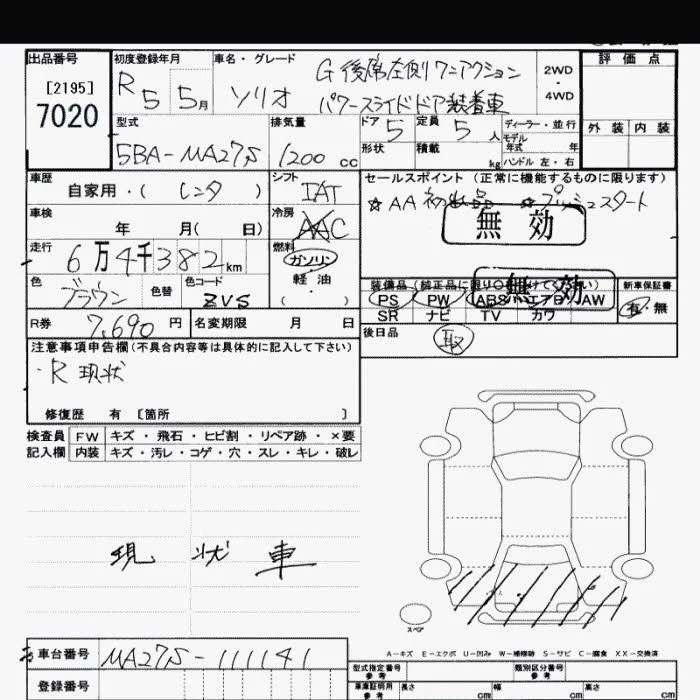 出品番号
[2195]
7020
初度登録年月
R5 5月
車名・グレード
ソリオ
G 後席左側ワンアクション
パワースライドドア装着車
2WD
4WD
評価点
外装 内装
型式
5BA-MA27S
排気量
1200 cc
ドア 5
定員 5 人
形状
積載 kg
ディーラー・並行
モデル
年式 年
ハンドル 左・右
車歴
自家用・( レンタ )
シフト
IAT
セールスポイント (正常に機能するものに限ります)
☆AA初出品 ☆プッシュスタート
無効
車検
年 月( 日)
冷房
AAC
走行
6万4千382km
燃料
ガソリン
軽油
( ・ )
色
ブラウン
色替
色コード
ZVS
装備品
無効
新車保証書
有・無
PS PW ABS エアB AW
SR ナビ TV カワ
R券 7,690 円
名変期限 月 日
後日品
取
注意事項申告欄(不具合内容等は具体的に記入して下さい)
・R 現状
修復歴 有 [箇所 ]
検査員 FW キズ・飛石・ヒビ割・リペア跡・×要
記入欄 内装 キズ・汚レ・コゲ・穴・スレ・キレ・破レ
現状車
スペア
A-キズ E-エクボ U-凹み W-補修跡 S-サビ C-腐食 XX-交換済
車台番号 MA27S-111141
登録番号
型式指定番号
参考
類別区分番号
参考
車庫証明用
参考
長さ cm 幅 cm 高さ cm